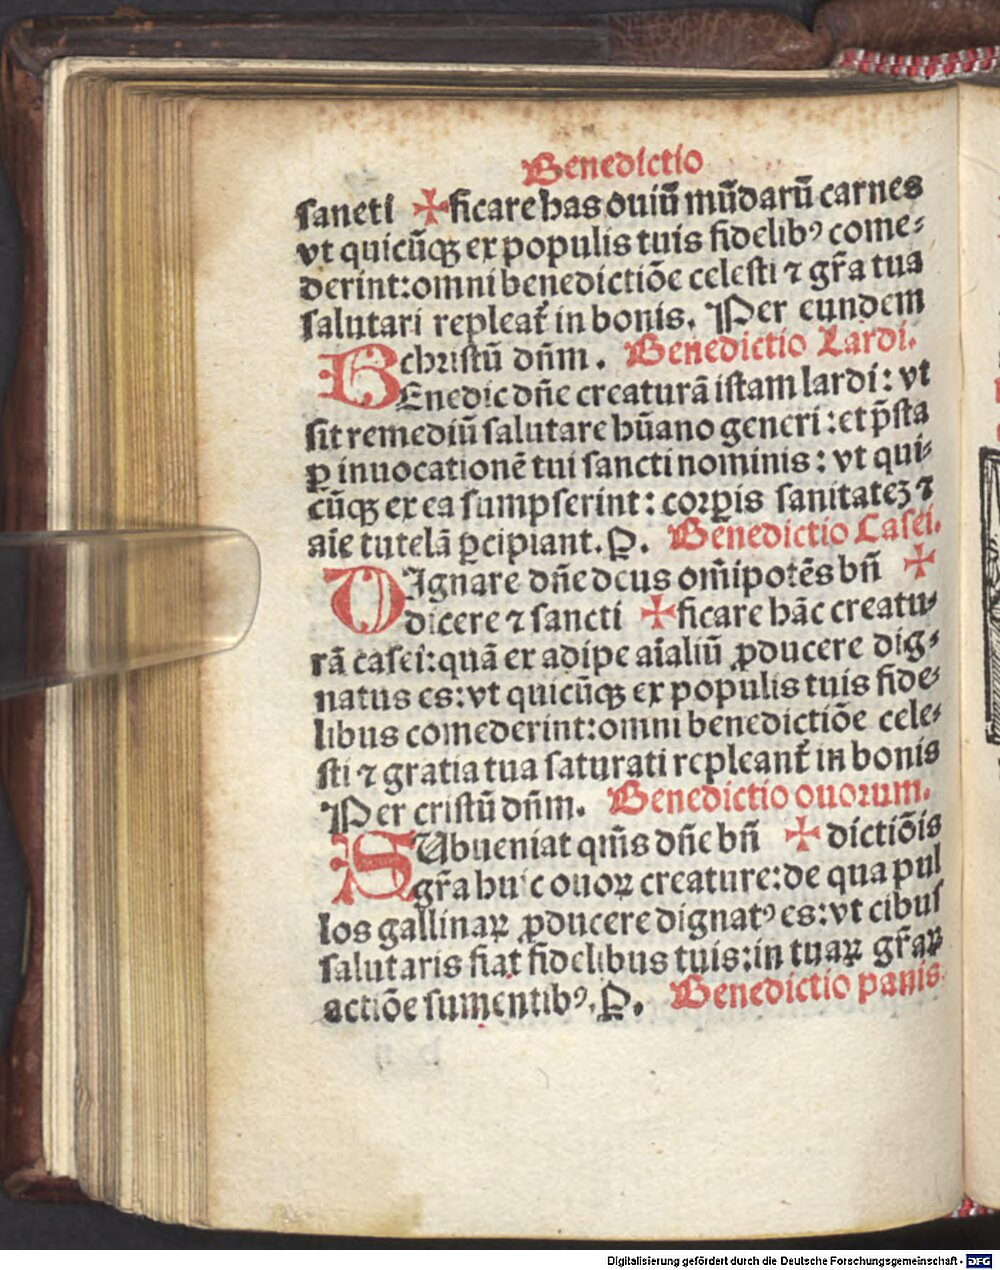 Benedictio
saneti ✠ficare has ouiū mūdarū carnes
vt quicūqꝫ ex populis tuis fidelibꝰ come⸗
derint:omni benedictiōe celesti ⁊ gr̄a tua
salutari repleat᷑ in bonis. Per eundem
christū dn̄m. Benedictio Lardi.
BEnedic dn̄e creaturā istam lardi: vt
sit remediū salutare hūano generi:et p̄sta
ꝑ inuocationē tui sancti nominis: vt qui⸗
cūqꝫ ex ea sumpserint: corꝑis sanitateꝫ ⁊
aīe tutelā ꝑcipiant. P̲. Benedictio Casei.
DIgnare dn̄e deus om̄ipotēs bn̄ ✠
dicere ⁊ sancti ✠ficare hāc creatu⸗
rā casei:quā ex adipe aīaliū ꝓducere dig⸗
natus es:vt quicūqꝫ ex populis tuis fide⸗
libus comederint:omni benedictiōe cele⸗
sti ⁊ gratia tua saturati repleant᷑ in bonis
Per cristū dn̄m. Benedictio ouorum.
SUbueniat qm̄s dn̄e bn̄ ✠ dictiōis
gr̄a huic ouoꝝ creature:de qua pul
los gallinaꝝ ꝓducere dignatꝰ es:vt cibus
salutaris fiat fidelibus tuis:in tuaꝝ gr̄aꝝ
actiōe sumentibꝰ. P̲. Benedictio panis.
Digitalisierung gefördert durch die Deutsche Forschungsgemeinschaft - DFG